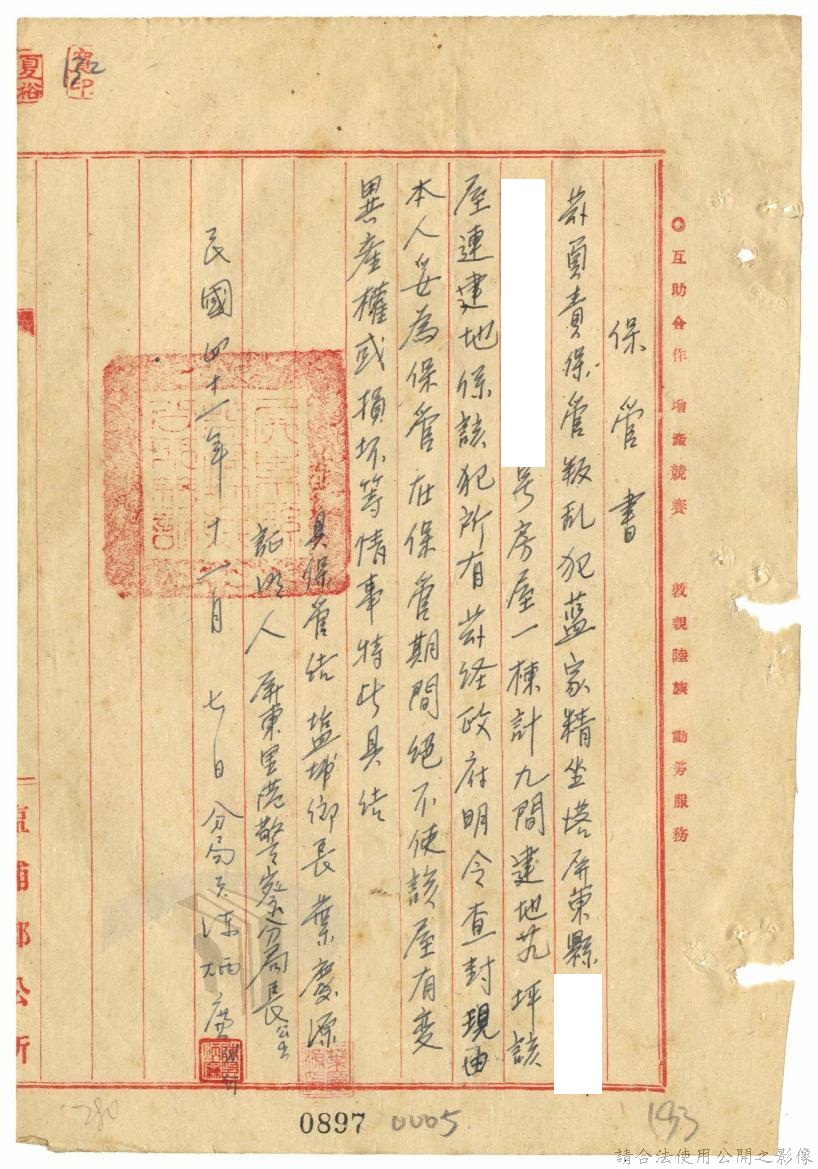 ◎互助合作 增產競賽 敦親陸族 勤労服務
保管書
茲負責保管叛乱犯藍家精坐塔屏東縣
号房屋一棟計九間建地 坪該
屋連建地係該犯所有茲经政府明令查封現由
本人妥為保管在保管期間絕不使該屋有变
異產權或損坏等情事特此具结
具保管结 塩埔鄉長 葉慶源
証明人 屏東里港警察分局長
民國四十一年十一月七日 分局員陳炳
塩埔鄉公所
夏裕
132
0897
0005
193
280
請合法使用公開之影像